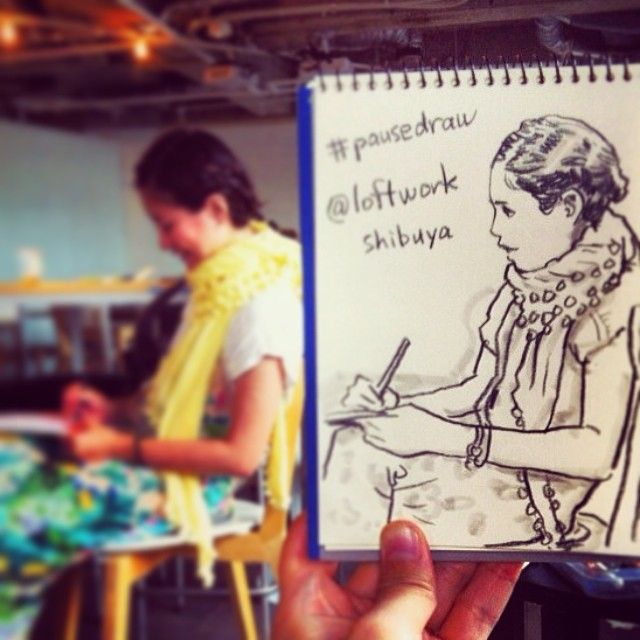 #pausedraw
@loftwork
shibuya